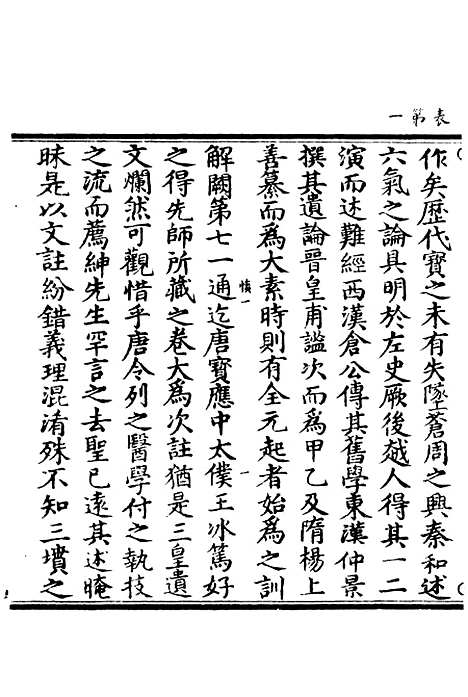 表第一
作矣歷代寶之未有失墜蒼周之興秦和述
六氣之論具明於左史厥後越人得其一二
演而述難經西漢倉公傳其舊學東漢仲景
撰其遺論晉皇甫謐次而爲甲乙及隋楊上
善纂而爲大素時則有全元起者始爲之訓
解闕第七一通迄唐寶應中太僕王冰篤好
之得先師所藏之卷大爲次註猶是三皇遺
文爛然可觀惜乎唐令列之醫學付之執技
之流而薦紳先生罕言之去聖已遠其述晻
昧是以文註紛錯義理混淆殊不知三墳之